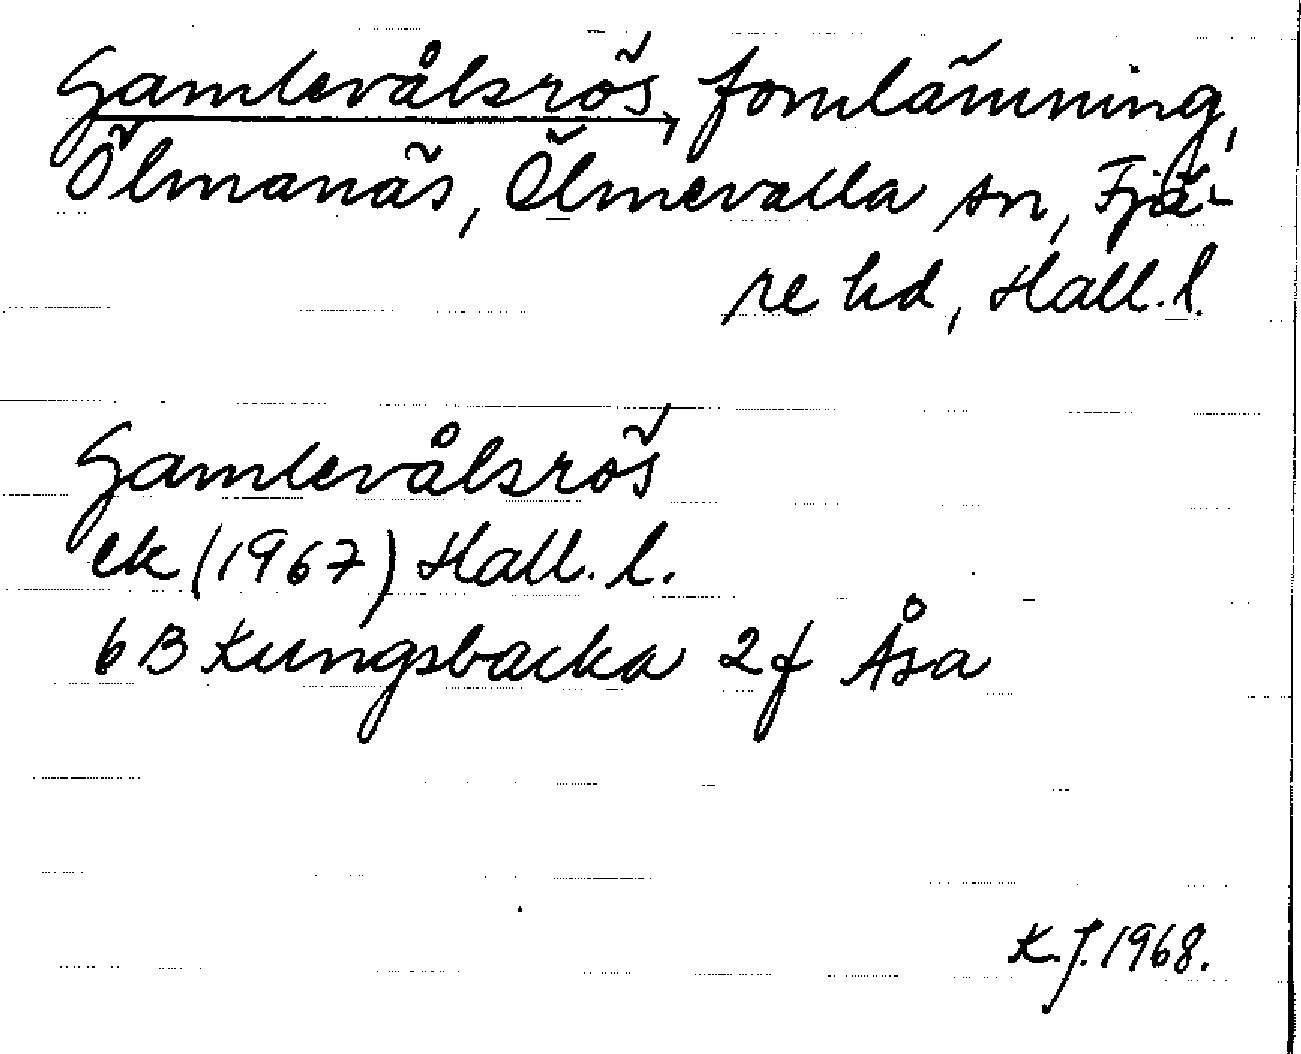 Gamlevålsrös, fornlämning,
Ölmanäs, Ölmevalla sn, Fjä-
re hd, Hall. l.
Gamlevålsrös
ek (1967) Hall. l.
6 B Kungsbacka 2 f Åsa
K. J. 1968.